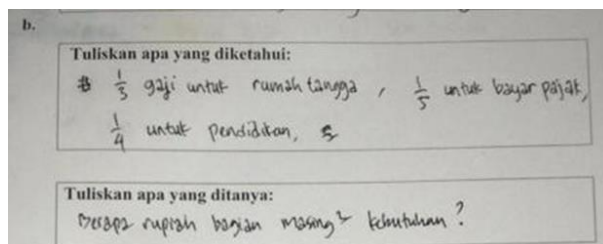 b.
Tuliskan apa yang diketahui:
1/3 gaji untuk rumah tangga, 1/5 untuk bayar pajak,
1/4 untuk pendidikan,
Tuliskan apa yang ditanya:
Berapa rupiah bagian masing² kebutuhan?